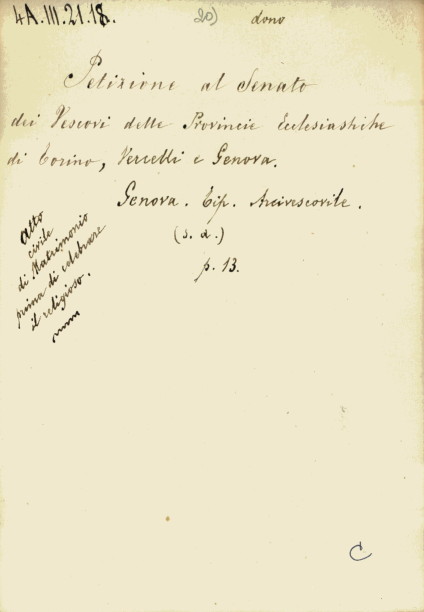 4A.III.21.18. 20) dono
Petizione al Senato
dei Vescovi delle Provincie Ecclesiastiche
di Torino, Vercelli e Genova.
Genova. Tip. Arcivescovile.
(s. d.)
p. 13.
Atto
civile
di Matrimonio
prima di celebrare
il religioso.
C